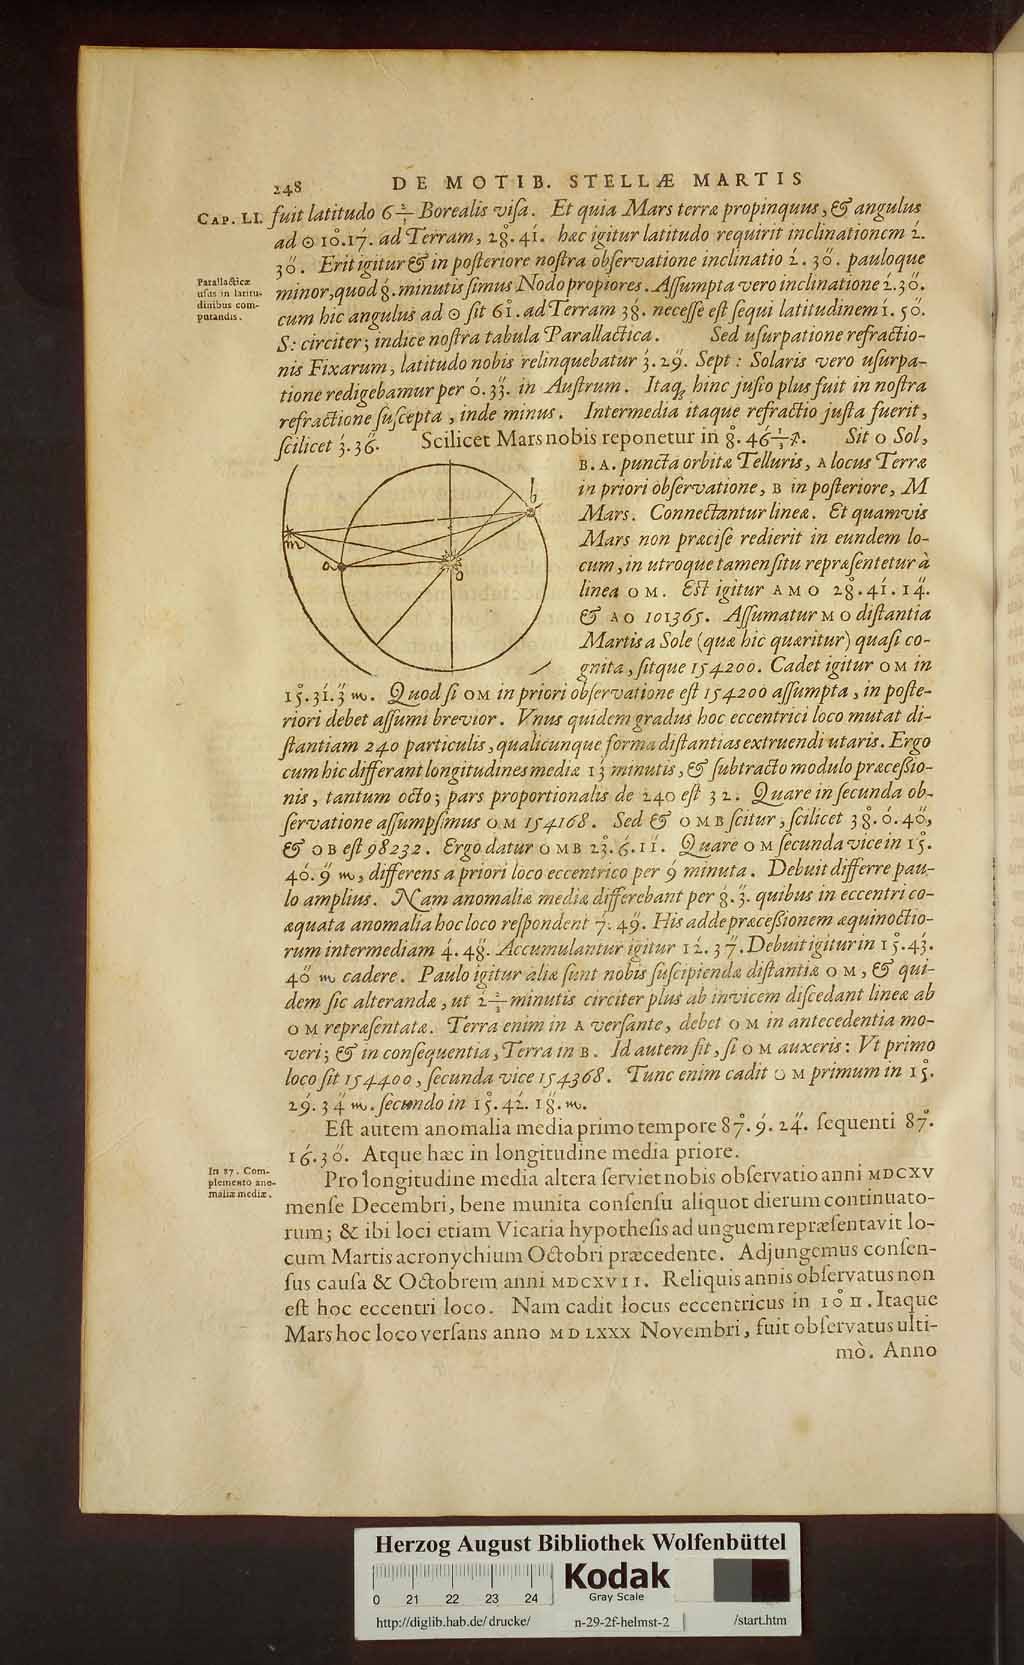 248 DE MOTIB. STELLÆ MARTIS
CAP. LI.
fuit latitudo 6 Borealis visa. Et quia Mars terræ propinquus, & angulus
ad ☉ 10°.17′. ad Terram, 28°.41′. hæc igitur latitudo requirit inclinationem 2′.
30″. Erit igitur & in posteriore nostra observatione inclinatio 2′.30″. pauloque
Parallacticæ
usus in latitu-
dinibus com-
putandis.
minor, quod 8′. minutis simus Nodo propiores. Assumpta vero inclinatione 2′.30″.
cum hic angulus ad ☉ sit 61°. ad Terram 38°. necesse est sequi latitudinem 1′.50″.
S: circiter; indice nostra tabula Parallactica. Sed usurpatione refractio-
nis Fixarum, latitudo nobis relinquebatur 3′.29″. Sept: Solaris vero usurpa-
tione redigebamur per 0′.33″. in Austrum. Itaq; hinc justo plus fuit in nostra
refractione suscepta, inde minus. Intermedia itaque refractio justa fuerit,
scilicet 3′.36″. Scilicet Mars nobis reponetur in 8°.46′ ♐. Sit O Sol,
B. A. puncta orbitæ Telluris, A locus Terræ
in priori observatione, B in posteriore, M
Mars. Connectantur lineæ. Et quamvis
Mars non præcise redierit in eundem lo-
cum, in utroque tamen situ repræsentetur à
linea OM. Est igitur AMO 28°.41′.14″.
& AO 101365. Assumatur MO distantia
Martis a Sole (quæ hic quæritur) quasi co-
gnita, sitque 154200. Cadet igitur OM in
b
m
a
o
15°.31′.3″ ♏. Quod si OM in priori observatione est 154200 assumpta, in poste-
riori debet assumi brevior. Vnus quidem gradus hoc eccentrici loco mutat di-
stantiam 240 particulis, qualicunque forma distantias extruendi utaris. Ergo
cum hic differant longitudines mediæ 13′ minutis, & subtracto modulo præcessio-
nis, tantum octo; pars proportionalis de 240 est 32. Quare in secunda ob-
servatione assumpsimus OM 154168. Sed & OMB scitur, scilicet 38°.0′.40″,
& OB est 98232. Ergo datur OMB 23°.6′.11″. Quare OM secunda vice in 15°.
40′.9″ ♏, differens a priori loco eccentrico per 9′ minuta. Debuit differre pau-
lo amplius. Nam anomaliæ mediæ differebant per 8′.3″. quibus in eccentri co-
æquata anomalia hoc loco respondent 7′.49″. His adde præcessionem æquinoctio-
rum intermediam 4′.48″. Accumulantur igitur 12′.37″. Debuit igitur in 15°.43′.
40″ ♏ cadere. Paulo igitur aliæ sunt nobis suscipiendæ distantiæ OM, & qui-
dem sic alterandæ, ut 2 minutis circiter plus ab invicem discedant lineæ ab
OM repræsentatæ. Terra enim in A versante, debet OM in antecedentia mo-
veri; & in consequentia, Terra in B. Id autem fit, si OM auxeris: Vt primo
loco sit 154400, secunda vice 154368. Tunc enim cadit OM primum in 15°.
29′.34″ ♏. secundo in 15°.42′.18″. ♏.
Est autem anomalia media primo tempore 87°.9′.24″. sequenti 87°.
16′.30″. Atque hæc in longitudine media priore.
In 87. Com-
plemento ano-
maliæ mediæ.
Pro longitudine media altera serviet nobis observatio anni MDCXV
mense Decembri, bene munita consensu aliquot dierum continuato-
rum; & ibi loci etiam Vicaria hypothesis ad unguem repræsentavit lo-
cum Martis acronychium Octobri præcedente. Adjungemus consen-
sus causa & Octobrem anni MDCXVII. Reliquis annis observatus non
est hoc eccentri loco. Nam cadit locus eccentricus in 10° ♊. Itaque
Mars hoc loco versans anno MDLXXX Novembri, fuit observatus ulti-
mò. Anno
Herzog August Bibliothek Wolfenbüttel
Kodak
Gray Scale
0 21 22 23 24
http://diglib.hab.de/drucke/ n-29-2f-helmst-2 /start.htm